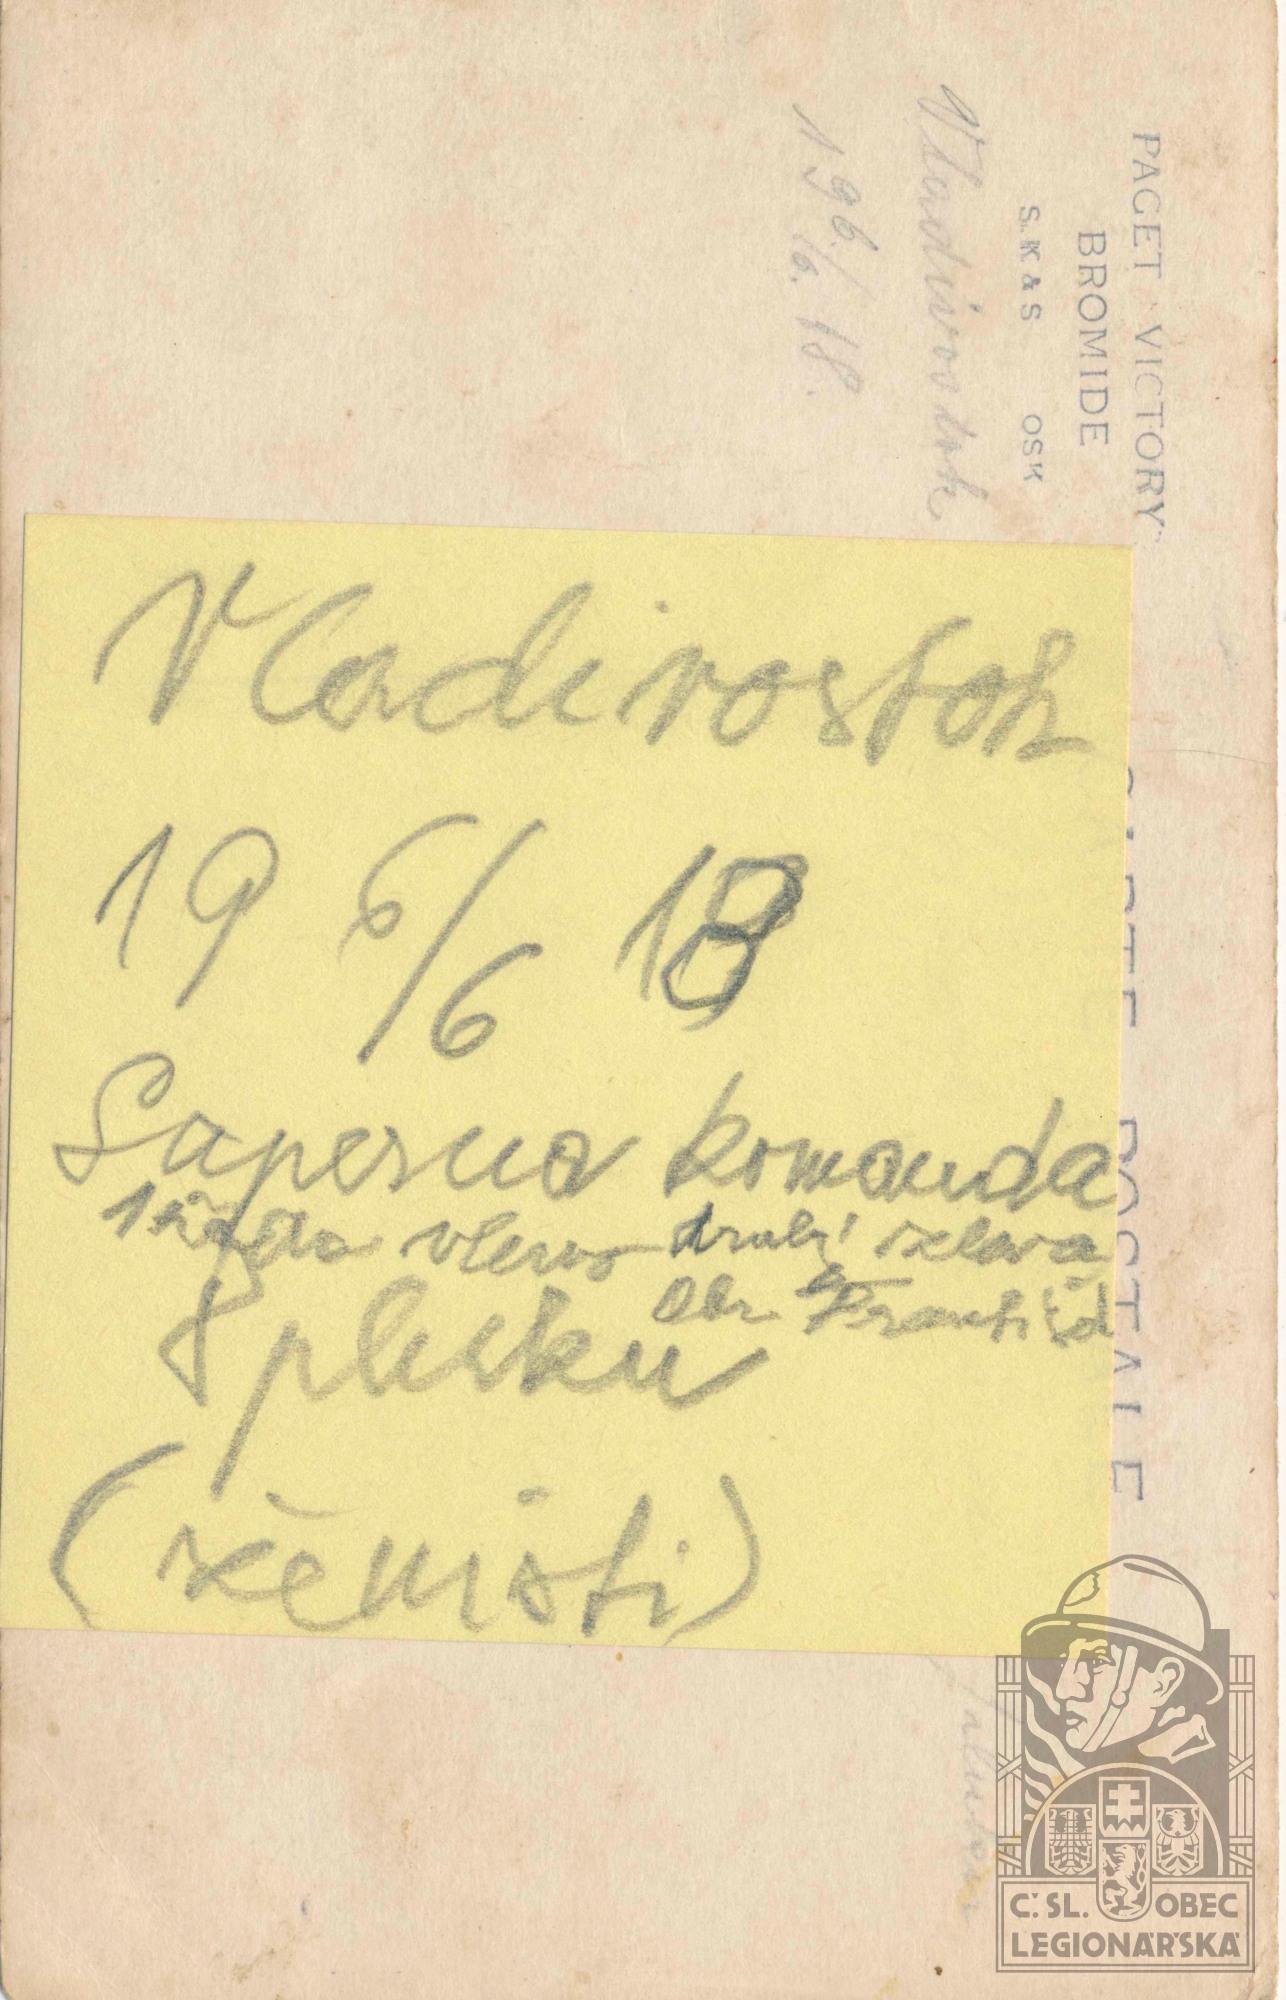 PAGET VICTORY
BROMIDE
S.K&S OSK
Vladivostok
19 6/6. 18.
Vladivostok
19 6/6 18
Saperna komanda
1 řada vlevo druhý zleva
Obr. Frant
8 pluku
(žěnisti)
CARTE POSTALE
Č.SL. OBEC
LEGIONÁŘSKÁ